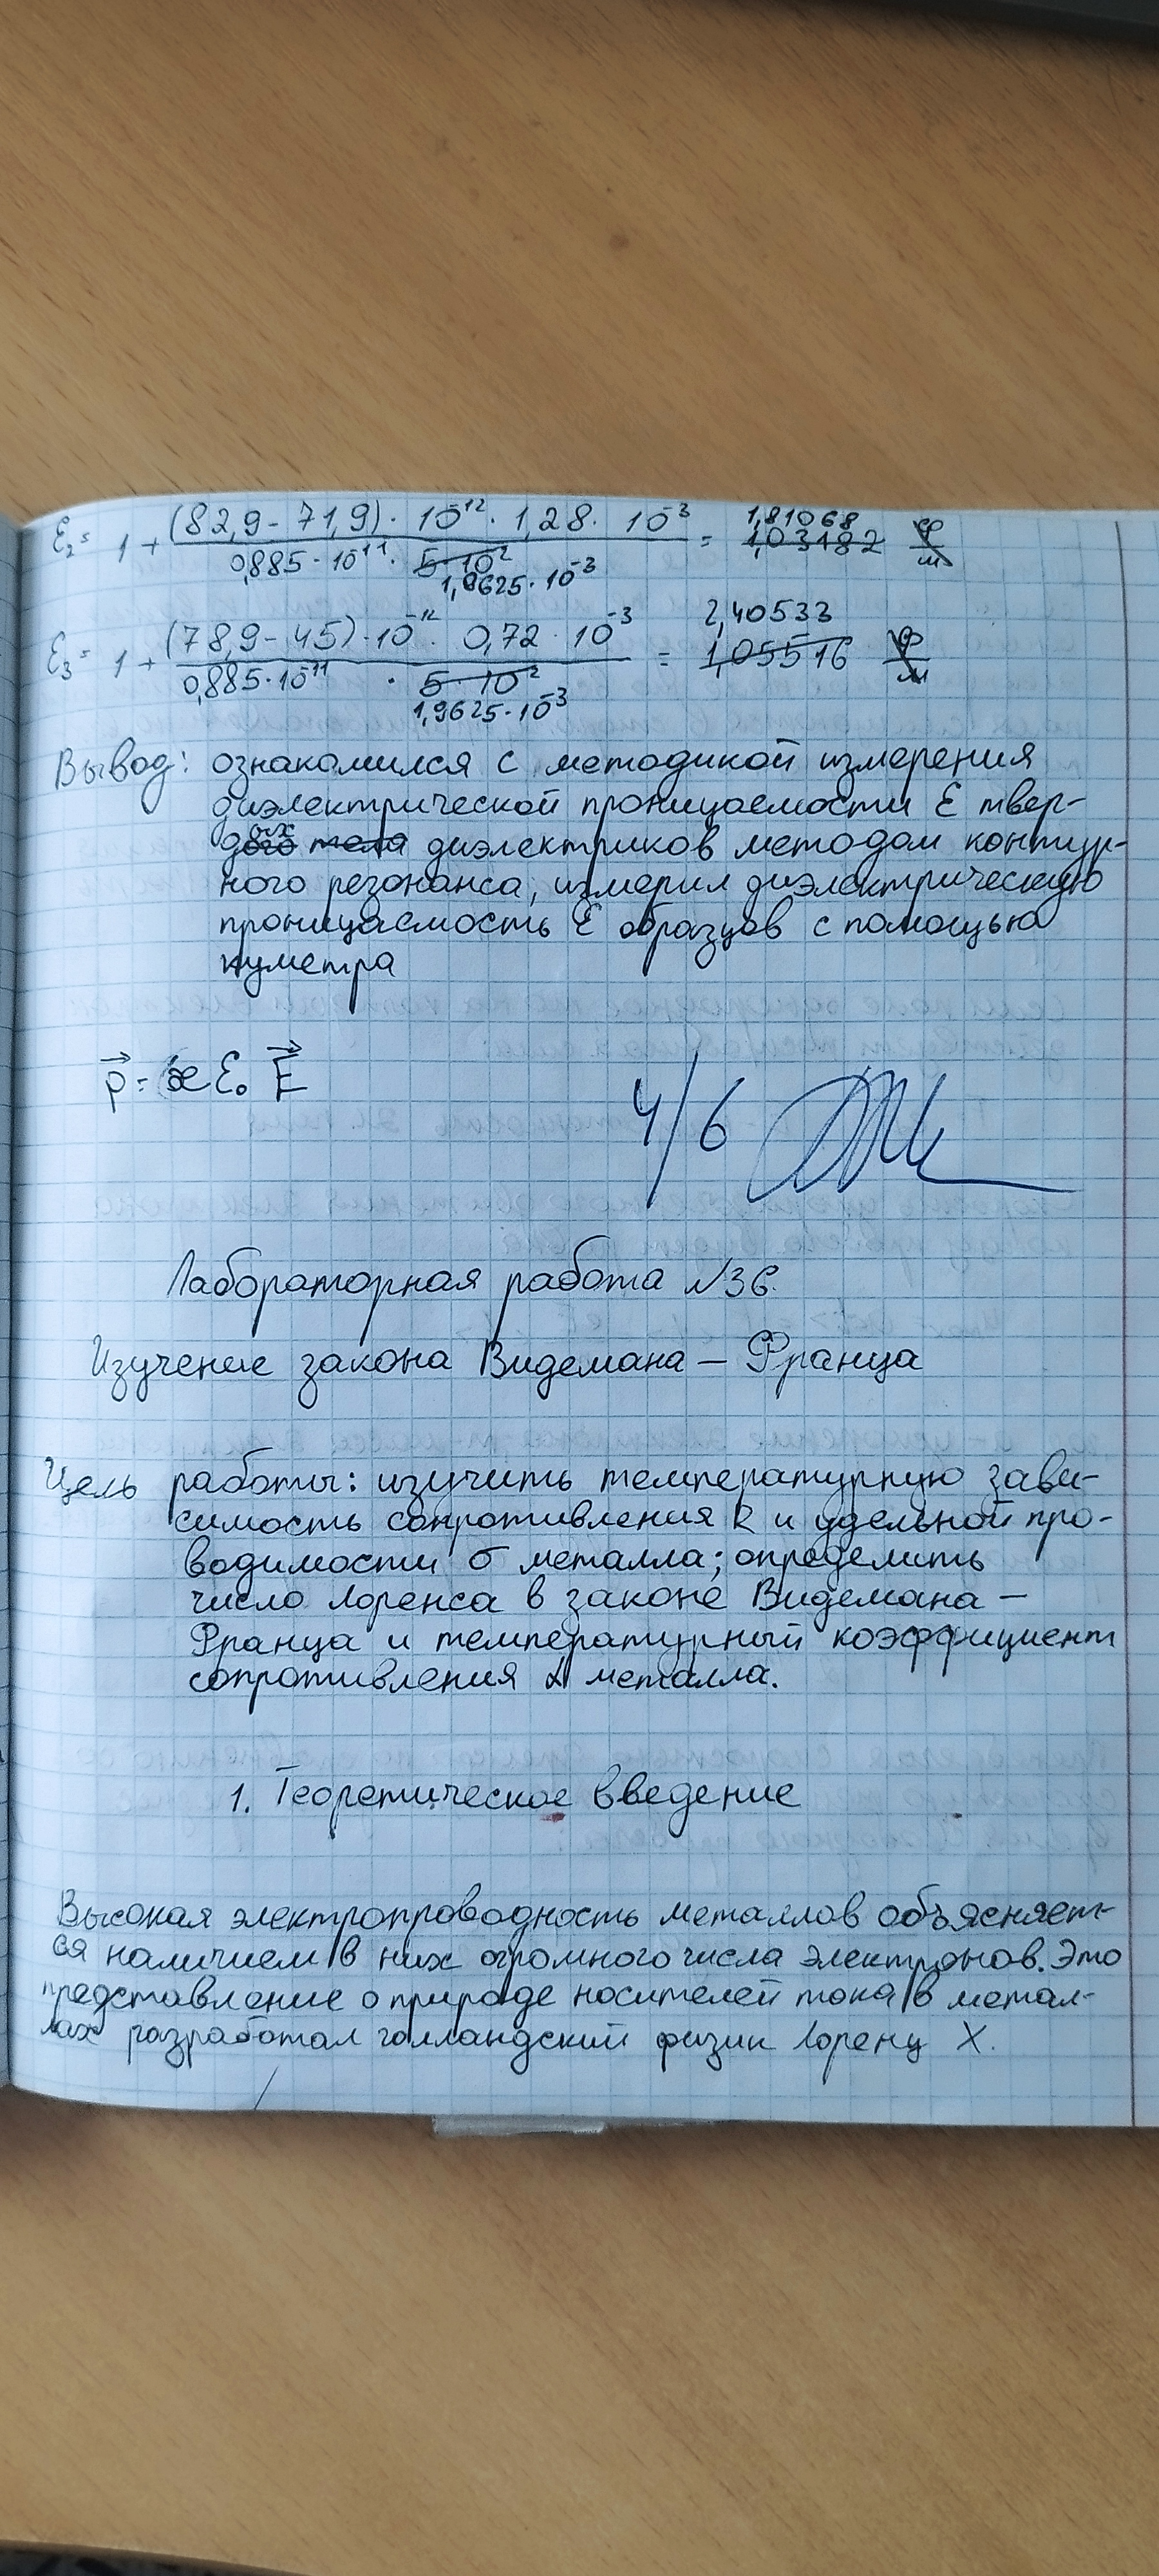 ε₂ = 1 + (82,9 - 71,9) · 10⁻¹² · 1,28 · 10⁻³ / 0,885 · 10⁻¹¹ · 5 · 10⁻² 1,9625 · 10⁻³ = 1,81068 1,03182 ф/м
ε₃ = 1 + (78,9 - 45) · 10⁻¹² · 0,72 · 10⁻³ / 0,885 · 10⁻¹¹ · 5 · 10⁻² 1,9625 · 10⁻³ = 2,40533 1,05516 ф/м
Вывод: ознакомился с методикой измерения
диэлектрической проницаемости ε твер-
дых тела диэлектриков методом контур-
ного резонанса, измерил диэлектрическую
проницаемость ε образцов с помощью
куметра
p⃗ = æ ε₀ E⃗
4/6
Лабораторная работа №36.
Изучение закона Видемана – Франца
Цель работы: изучить температурную зави-
симость сопротивления R и удельной про-
водимости σ металла; определить
число Лоренса в законе Видемана –
Франца и температурный коэффициент
сопротивления α металла.
1. Теоретическое введение
Высокая электропроводность металлов объясняет-
ся наличием в них огромного числа электронов. Это
представление о природе носителей тока в метал-
лах разработал голландский физик Лоренц Х.